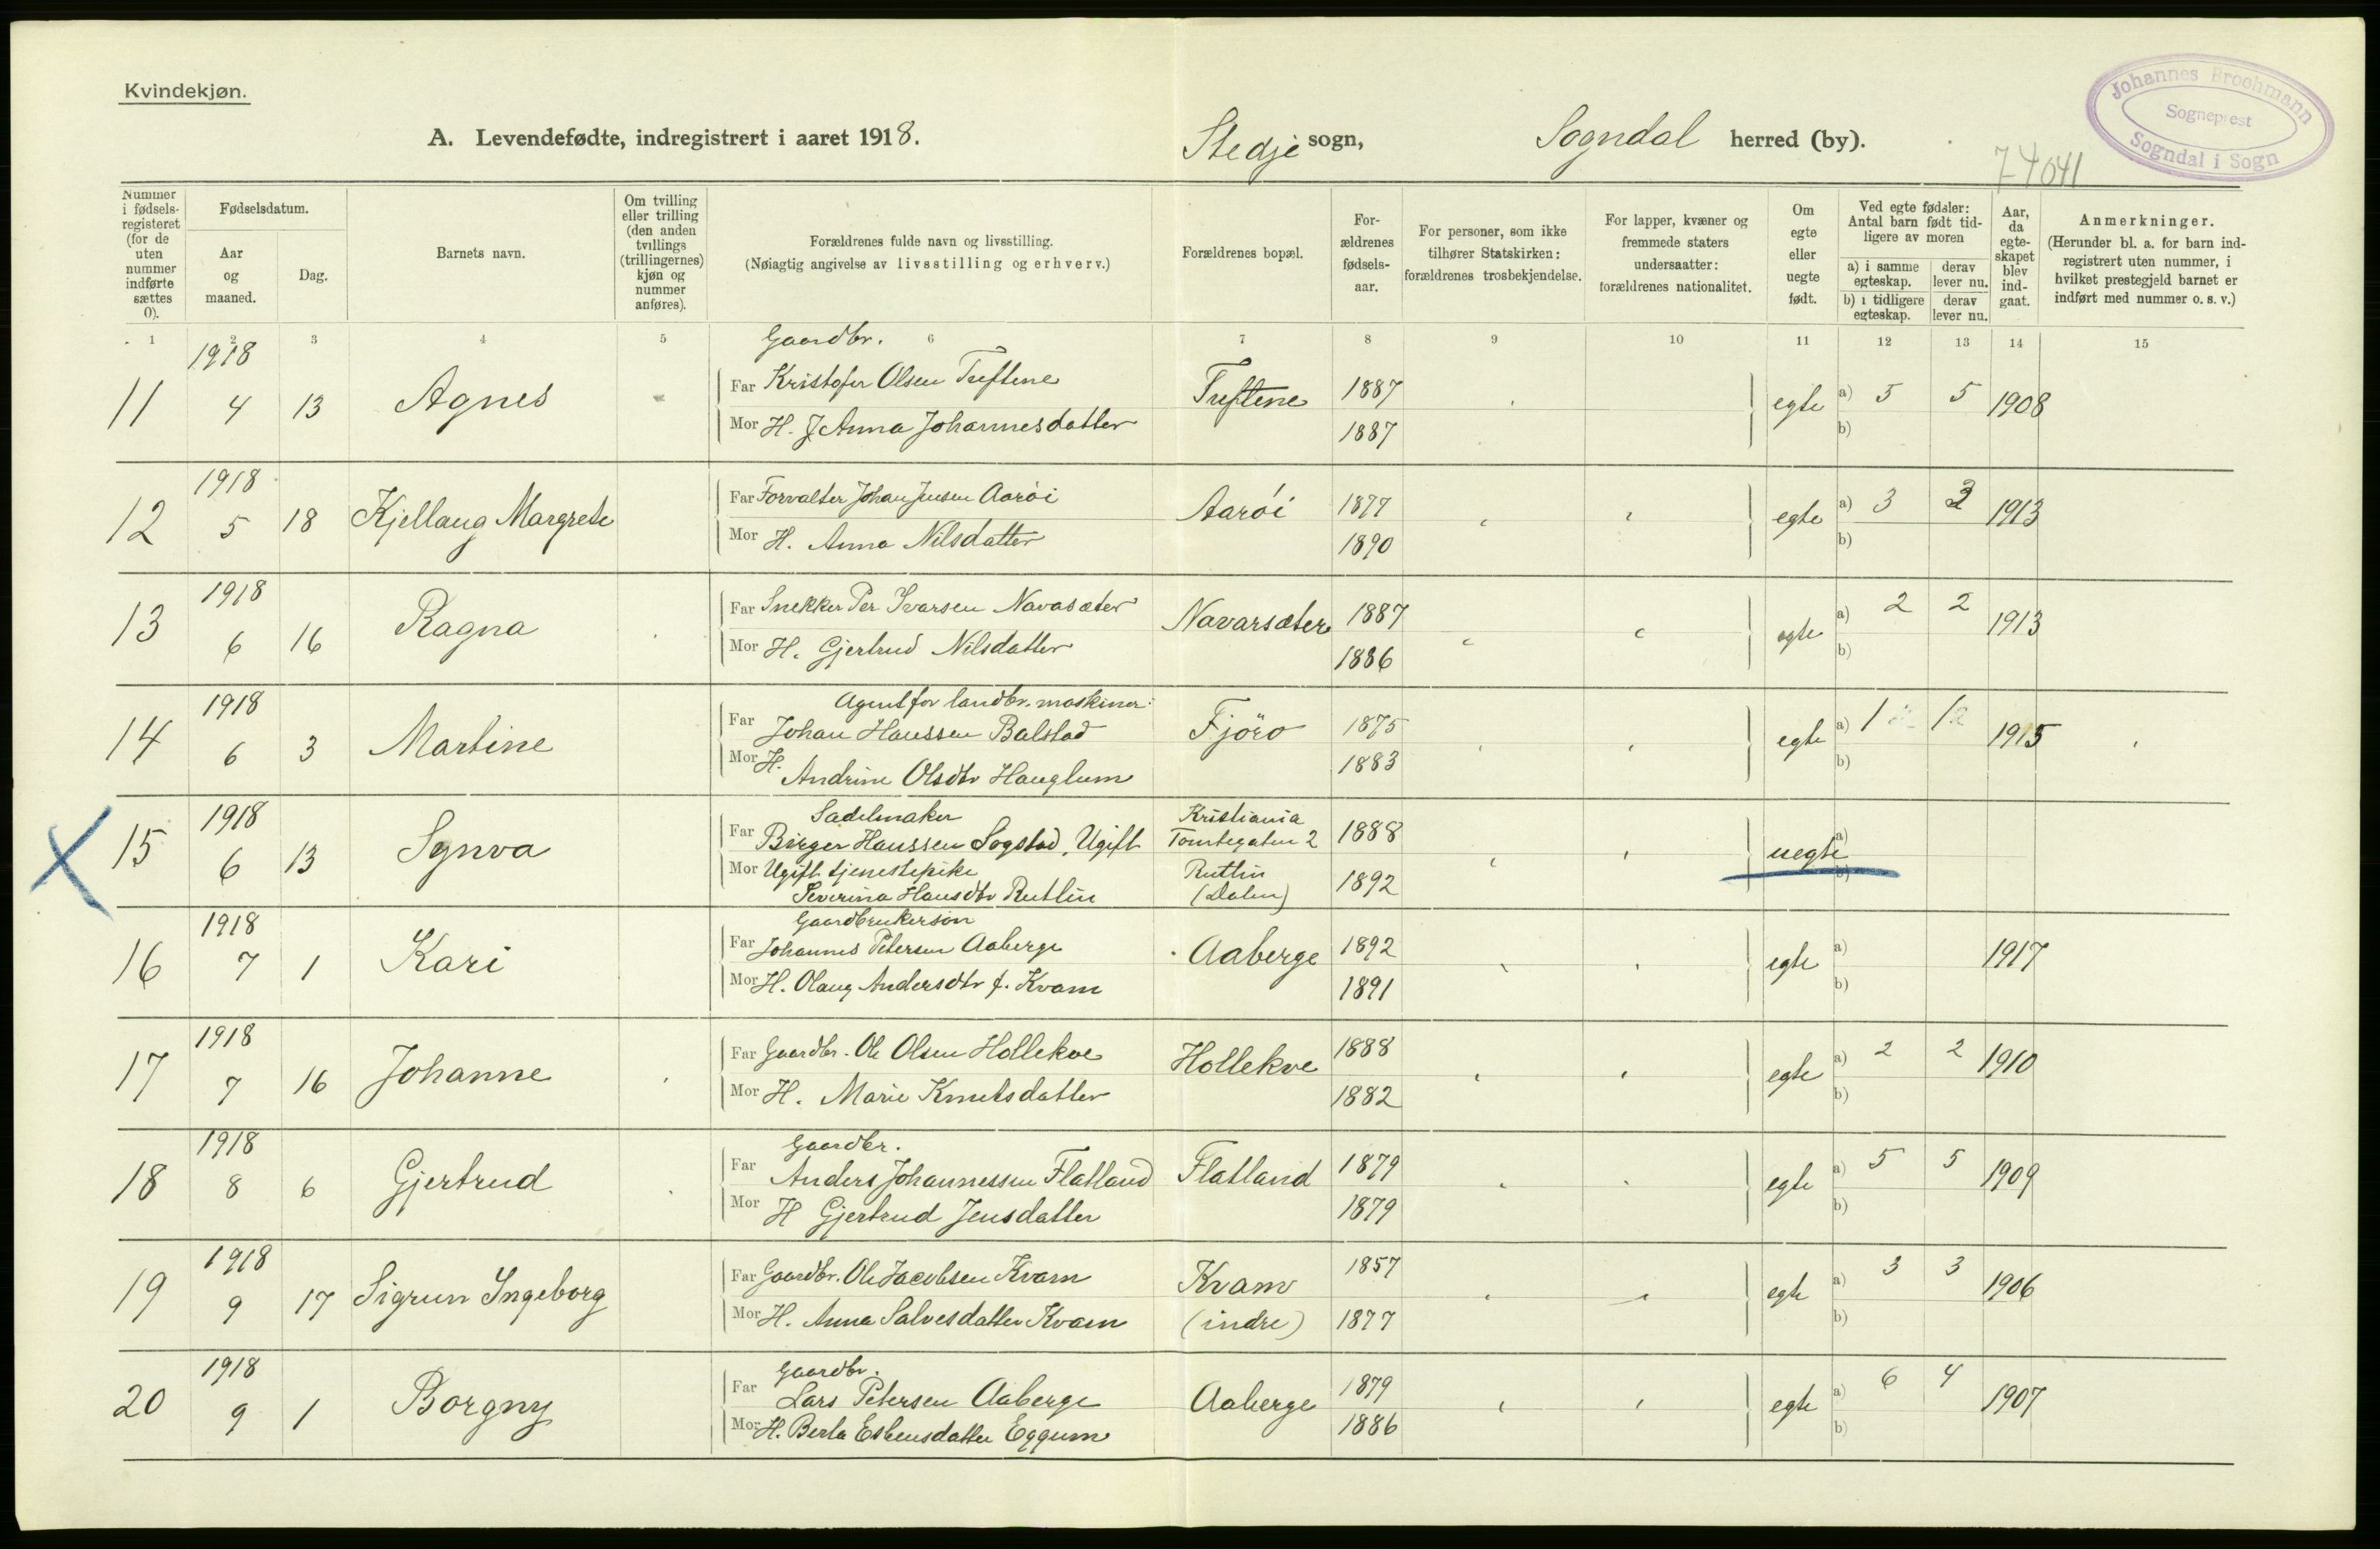 Kvindekjøn.
A. Levendefødte, indregistrert i aaret 1918.
Stedje sogn,
Sogndal herred (by).
74041
Johannes Brochmann
Sogneprest
Sogndal i Sogn
Nummer i fødsels-registeret (for de uten nummer indførte sættes 0).
Fødselsdatum.
Aar og maaned.
Dag.
Barnets navn.
Om tvilling eller trilling (den anden tvillings (trillingernes) kjøn og nummer anføres).
Forældrenes fulde navn og livsstilling.
(Nøiagtig angivelse av livsstilling og erhverv.)
Forældrenes bopæl.
For-ældrenes fødsels-aar.
For personer, som ikke tilhører Statskirken: forældrenes trosbekjendelse.
For lapper, kvæner og fremmede staters undersaatter: forældrenes nationalitet.
Om egte eller uegte født.
Ved egte fødsler: Antal barn født tid-ligere av moren
a) i samme egteskap.
derav lever nu.
b) i tidligere egteskap.
derav lever nu.
Aar, da egte-skapet blev ind-gaat.
Anmerkninger.
(Herunder bl. a. for barn ind-registrert uten nummer, i hvilket prestegjeld barnet er indført med nummer o. s. v.)
1 2 3 4 5 6 7 8 9 10 11 12 13 14 15
1918
Gaardbr.
11 4 13 Agnes Far Kristofer Olsen Tuftene Tuftene 1887 egte a) 5 5 1908
Mor H. J. Anna Johannesdatter 1887 b)
1918
12 5 18 Kjellaug Margrete Far Forvalter Johan Jensen Aarøi Aarøi 1877 egte a) 3 3 1913
Mor H. Anna Nilsdatter 1890 b)
1918
13 6 16 Ragna Far Snekker Per Ivarsen Navasæter Navarsæter 1887 egte a) 2 2 1913
Mor H. Gjertrud Nilsdatter 1886 b)
1918
Agent for landbr. maskiner
14 6 3 Martine Far Johan Hanssen Balstad Fjöro 1875 egte a) 1 1 1915
Mor H. Andrine Olsdtr Hauglum 1883 b)
1918
Sadelmaker
Kristiania
15 6 13 Synva Far Birger Hanssen Sogstad, Ugift Tomtegaten 2 1888 uegte a)
Mor Ugift tjenestepike Rutlin 1892 b)
Severina Hansdtr Rutlin (Dalen)
1918
Gaardbrukersön
16 7 1 Kari Far Johannes Petersen Aaberge Aaberge 1892 egte a) 1917
Mor H. Olaug Andersdtr f. Kvam 1891 b)
1918
17 7 16 Johanne Far Gaardbr. Ole Olsen Hollekve Hollekve 1888 egte a) 2 2 1910
Mor H. Marie Knutsdatter 1882 b)
1918
Gaardbr.
18 8 6 Gjertrud Far Anders Johannessen Flatland Flatland 1879 egte a) 5 5 1909
Mor H Gjertrud Jensdatter 1879 b)
1918
19 9 17 Sigrun Ingeborg Far Gaardbr. Ole Jacobsen Kvam Kvam 1857 egte a) 3 3 1906
Mor H. Anna Salvesdatter Kvam (indre) 1877 b)
1918
Gaardbr.
20 9 1 Borgny Far Lars Petersen Aaberge Aaberge 1879 egte a) 6 4 1907
Mor H. Berta Esbensdatter Eggum 1886 b)